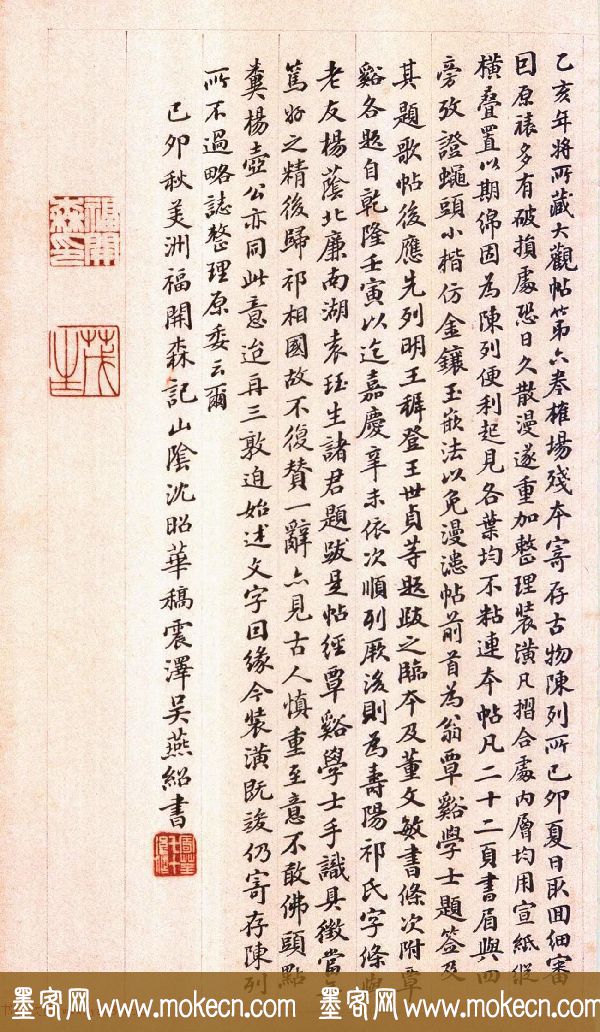 乙亥年將所藏大觀帖第六卷榷場殘本寄存古物陳列所己卯夏日取回細審
回原裱多有破損處恐日久散漫遂重加整理裝潢凡摺合處內層均用宣紙縱
橫疊置以期綿固為陳列便利起見各葉均不粘連本帖凡二十二頁書眉與四
旁攷證蠅頭小楷仿金鑲玉嵌法以免漫漶帖前首為翁覃谿學士題签及
其題歌帖後應先列明王穉登王世貞等題跋之臨本及董文敏書條次附覃
谿各題自乾隆壬寅以迄嘉慶辛未依次順列厥後則為壽陽祁氏字條
老友楊蔭北廉南湖袁珏生諸君題跋是帖經覃谿學士手識具徵當
篤好之精後歸祁相國故不復贊一辭亦見古人慎重至意不敢佛頭點
糞楊壺公亦同此意迨再三敦迫始述文字因緣今裝潢既竣仍寄存陳列
所不過略誌整理原委云爾
己卯秋美洲福開森記山陰沈昭華稿震澤吳燕紹書
福開森印
茂生
墨客网 www.mokecn.com 墨客网 www.mokecn.com